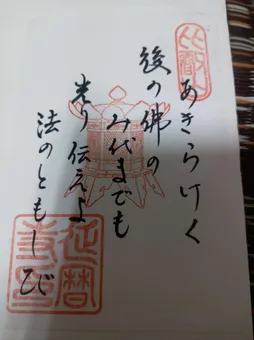 比叡山
あきらけく
後の佛の
み代までも
光り伝えよ
法のともしび
延暦寺印